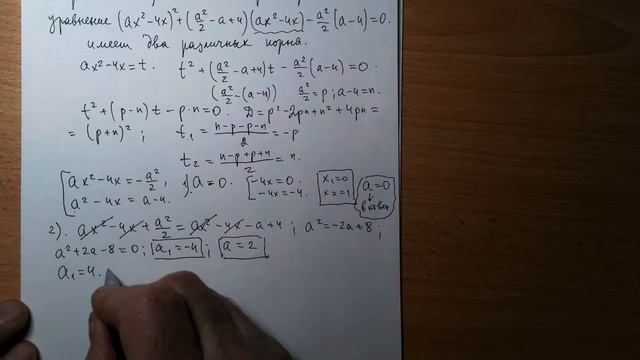 уравнение (ax²-4x)²+(a²/2-a+4)(ax²-4x)-a²/2(a-4)=0.
имеет два различных корня.
ax²-4x=t. t²+(a²/2-a+4)t-a²/2(a-4)=0.
(a²/2-(a-4)) a²/2=p; a-4=n.
t²+(p-n)t-p·n=0. D=p²-2pn+n²+4pn=
=(p+n)²; t₁=(n-p-p-n)/2=-p
t₂=(n-p+p+n)/2=n.
[ax²-4x=-a²/2, 1) a=0. [-4x=0. x₁=0 a=0
a²-4x=a-4. -4x=-4. x₂=1 в ответ
2). ax²-4x+a²/2=ax²-4x-a+4; a²=-2a+8;
a²+2a-8=0; a₁=-4; a=2
a₁=4.